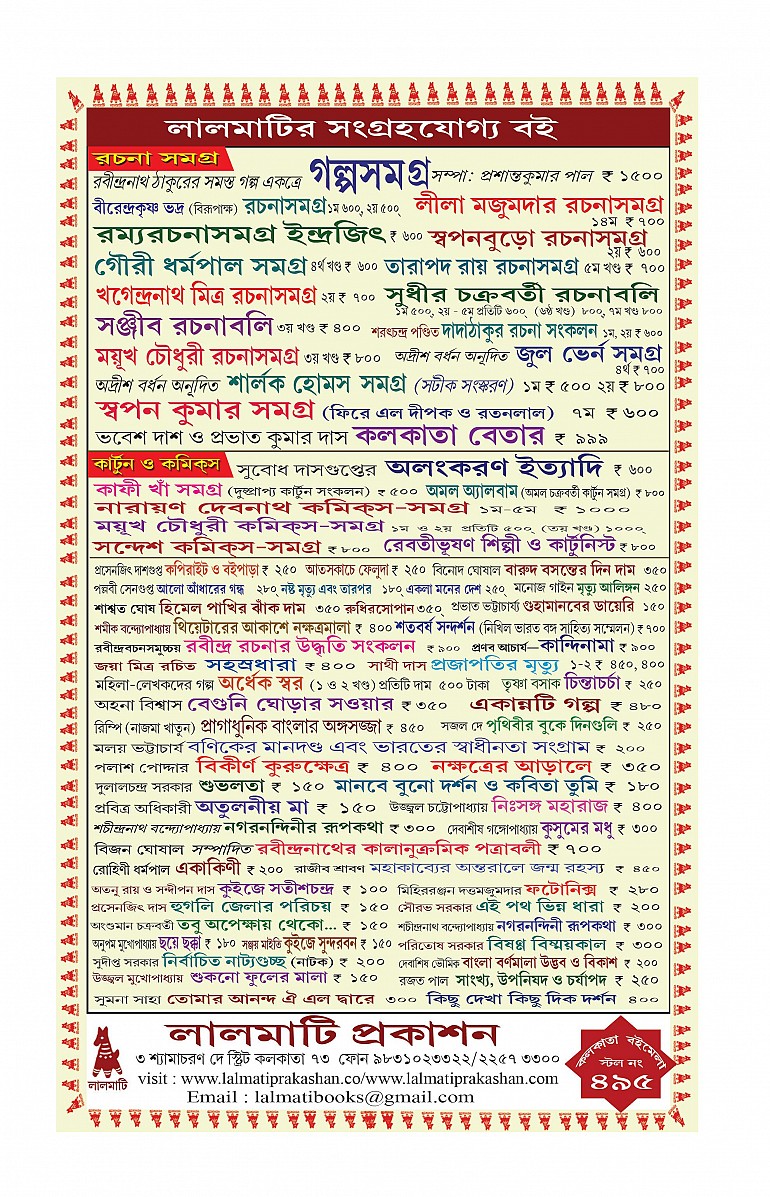 লালমাটির সংগ্রহযোগ্য বই
রচনা সমগ্র
রবীন্দ্রনাথ ঠাকুরের সমস্ত গল্প একত্রে গল্পসমগ্র সম্পা: প্রশান্তকুমার পাল ₹ ১৫০০
বীরেন্দ্রকৃষ্ণ ভদ্র (বিরূপাক্ষ) রচনাসমগ্র ১ম ৬০০, ২য় ৫০০ লীলা মজুমদার রচনাসমগ্র ১৪ম ₹ ৭০০
রম্যরচনাসমগ্র ইন্দ্রজিৎ ₹ ৬০০ স্বপনবুড়ো রচনাসমগ্র ২য় ₹ ৬০০
গৌরী ধর্মপাল সমগ্র ৪র্থ খণ্ড ₹ ৬০০ তারাপদ রায় রচনাসমগ্র ৫ম খণ্ড ₹ ৭০০
খগেন্দ্রনাথ মিত্র রচনাসমগ্র ২য় ₹ ৭০০ সুধীর চক্রবর্তী রচনাবলি
১ম ৫০০, ২য় - ৫ম প্রতিটি ৬০০, (৬ষ্ঠ খণ্ড) ৮০০, ৭ম খণ্ড ৮০০
সঞ্জীব রচনাবলি ৩য় খণ্ড ₹ ৪০০ শরৎচন্দ্র পণ্ডিত দাদাঠাকুর রচনা সংকলন ১ম, ২য় ₹ ৬০০
ময়ূখ চৌধুরী রচনাসমগ্র ৩য় খণ্ড ₹ ৮০০ অদ্রীশ বর্ধন অনূদিত জুল ভের্ন সমগ্র ৪র্থ ₹ ৭০০
অদ্রীশ বর্ধন অনূদিত শার্লক হোমস সমগ্র (সটীক সংস্করণ) ১ম ₹ ৫০০ ২য় ₹ ৮০০
স্বপন কুমার সমগ্র (ফিরে এল দীপক ও রতনলাল) ৭ম ₹ ৬০০
ভবেশ দাশ ও প্রভাত কুমার দাস কলকাতা বেতার ₹ ৯৯৯
কার্টুন ও কমিক্‌স সুবোধ দাসগুপ্তের অলংকরণ ইত্যাদি ₹ ৬০০
কাফী খাঁ সমগ্র (দুষ্প্রাপ্য কার্টুন সংকলন) ₹ ৫০০ অমল অ্যালবাম (অমল চক্রবর্তী কার্টুন সমগ্র) ₹ ৮০০
নারায়ণ দেবনাথ কমিক্‌স-সমগ্র ১ম-৫ম ₹ ১০০০
ময়ূখ চৌধুরী কমিক্‌স-সমগ্র ১ম ও ২য় প্রতিটি ৫০০, (৩য় খণ্ড) ১০০০
সন্দেশ কমিক্‌স-সমগ্র ₹ ৮০০ রেবতীভূষণ শিল্পী ও কার্টুনিস্ট ₹ ৮০০
প্রসেনজিৎ দাশগুপ্ত কপিরাইট ও বইপাড়া ₹ ২৫০ আতসকাচে ফেলুদা ₹ ২৫০ বিনোদ ঘোষাল বারুদ বসন্তের দিন দাম ৩৫০
পল্লবী সেনগুপ্ত আলো আঁধারের গন্ধ ২৮০, নষ্ট মৃত্যু এবং তারপর ১৮০, একলা মনের দেশ ২৫০, মনোজ গাইন মৃত্যু আলিঙ্গন ২৫০
শাশ্বত ঘোষ হিমেল পাখির ঝাঁক দাম ৩৫০ রুধিরসোপান ৩৫০, প্রভাত ভট্টাচার্য্য গুহামানবের ডায়েরি ১৫০
শমীক বন্দ্যোপাধ্যায় থিয়েটারের আকাশে নক্ষত্রমালা ₹ ৪০০ শতবর্ষ সন্দর্শন (নিখিল ভারত বঙ্গ সাহিত্য সম্মেলন) ₹ ৭০০
রবীন্দ্ররবচনসমুচ্চয় রবীন্দ্র রচনার উদ্ধৃতি সংকলন ₹ ৯০০ প্রণব আচার্য—কান্দিনামা ₹ ৯০০
জয়া মিত্র রচিত সহস্রধারা ₹ ৪০০ সাথী দাস প্রজাপতির মৃত্যু ১-২ ₹ ৪৫০, ৪০০
মহিলা-লেখকদের গল্প অর্ধেক স্বর (১ ও ২ খণ্ড) প্রতিটি দাম ৫০০ টাকা তৃষ্ণা বসাক চিন্তাচর্চা ₹ ২৫০
অহনা বিশ্বাস বেগুনি ঘোড়ার সওয়ার ₹ ৩৫০ একান্নটি গল্প ₹ ৪৮০
রিম্পি (নাজমা খাতুন) প্রাগাধুনিক বাংলার অঙ্গসজ্জা ₹ ৪৫০ সজল দে পৃথিবীর বুকে দিনগুলি ₹ ২৫০
মলয় ভট্টাচার্য বণিকের মানদণ্ড এবং ভারতের স্বাধীনতা সংগ্রাম ₹ ২০০
পলাশ পোদ্দার বিকীর্ণ কুরুক্ষেত্র ₹ ৪০০ নক্ষত্রের আড়ালে ₹ ৩৫০
দুলালচন্দ্র সরকার শুভলতা ₹ ১৫০ মানবে বুনো দর্শন ও কবিতা তুমি ₹ ১৮০
প্রবিত্র অধিকারী অতুলনীয় মা ₹ ১৫০ উজ্জল চট্টোপাধ্যায় নিঃসঙ্গ মহারাজ ₹ ৪০০
শচীন্দ্রনাথ বন্দ্যোপাধ্যায় নগরনন্দিনীর রূপকথা ₹ ৩০০ দেবাশীষ গঙ্গোপাধ্যায় কুসুমের মধু ₹ ৩০০
বিজন ঘোষাল সম্পাদিত রবীন্দ্রনাথের কালানুক্রমিক পত্রাবলী ₹ ৭০০
রোহিণী ধর্মপাল একাকিণী ₹ ২০০ রাজীব শ্রাবণ মহাকাব্যের অন্তরালে জন্ম রহস্য ₹ ৪৫০
অতনু রায় ও সন্দীপন দাস কুইজে সতীশচন্দ্র ₹ ১০০ মিহিররঞ্জন দত্তমজুমদার ফটোনিক্স ₹ ২৮০
প্রসেনজিৎ দাস হুগলি জেলার পরিচয় ₹ ১৫০ সৌরভ সরকার এই পথ ভিন্ন ধারা ₹ ২০০
অংশুমান চক্রবর্তী তবু অপেক্ষায় থেকো... ₹ ১৫০ শচীন্দ্রনাথ বন্দ্যোপাধ্যায় নগরনন্দিনী রূপকথা ₹ ৩০০
অনুপম মুখোপাধ্যায় ছয়ে ছক্কা ₹ ১৮০ সঞ্জয় মাইতি কুইজে সুন্দরবন ₹ ১৫০ পরিতোষ সরকার বিষণ্ণ বিস্ময়কাল ₹ ৩০০
সুদীপ্ত সরকার নির্বাচিত নাট্যগুচ্ছ (নাটক) ₹ ২০০ দেবাশিষ ভৌমিক বাংলা বর্ণমালা উদ্ভব ও বিকাশ ₹ ২০০
উজ্জ্বল মুখোপাধ্যায় শুকনো ফুলের মালা ₹ ১৫০ রজত পাল সাংখ্য, উপনিষদ ও চর্যাপদ ₹ ২৫০
সুমনা সাহা তোমার আনন্দ ঐ এল দ্বারে ৩০০ কিছু দেখা কিছু দিক দর্শন ৪০০
লালমাটি প্রকাশন
৩ শ্যামাচরণ দে স্ট্রিট কলকাতা ৭৩ ফোন ৯8৩1০২33২২/22৫৭ ৩৩০০
visit : www.lalmatiprakashan.co/www.lalmatiprakashan.com
Email : lalmatibooks@gmail.com
লালমাটি
কলকাতা বইমেলা
স্টল নং
৪৯৫